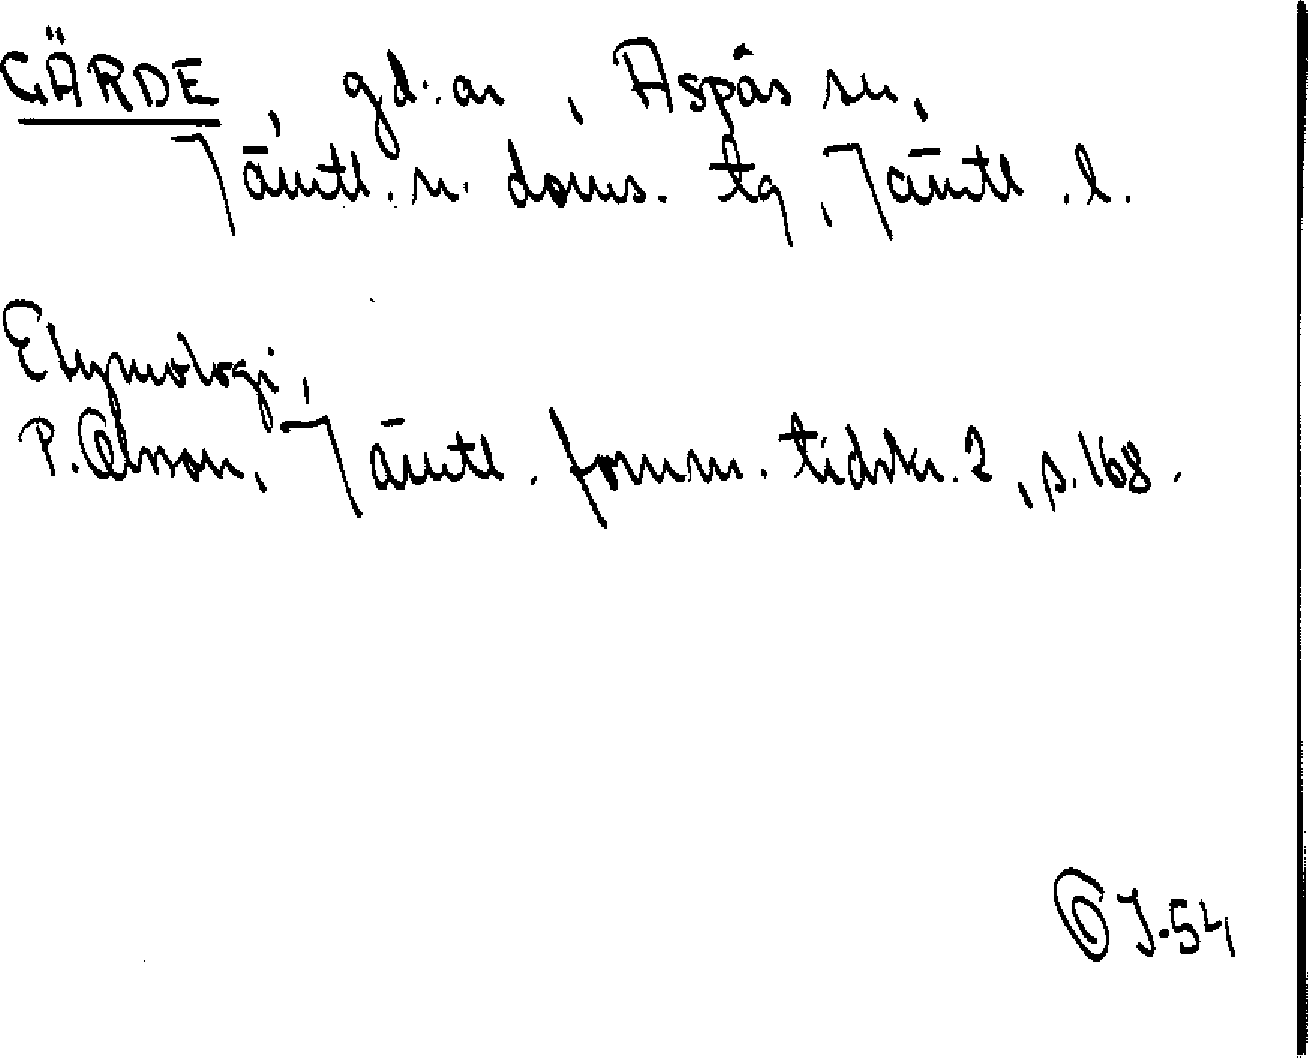 GÄRDE, gd:ar, Aspås sn,
Jämtl. n. doms. tg, Jämtl. l.
Etymologi,
P. Olsson, Jämtl. fornm. tidskr. 2, s. 168.
OJ-54